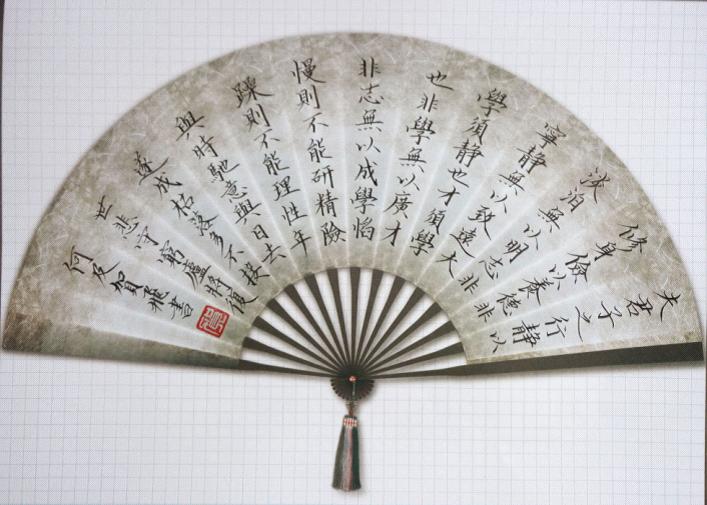 夫君子之行静以
修身儉以養德非
淡泊無以明志非
寧静無以致遠夫
學須静也才須學
也非學無以廣才
非志無以成學慆
慢則不能研精險
躁則不能理性年
與時馳意與日去
遂成枯落多不接
世悲守窮廬將復
何及 賀書